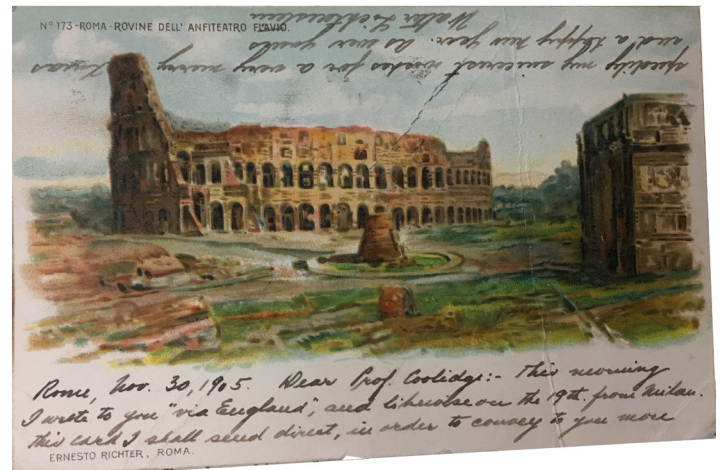 Nº 173-ROMA-ROVINE DELL' ANFITEATRO FLAVIO.
Rome, Nov. 30, 1905. Dear Prof. Coolidge:- This morning
I wrote to you "via England", and likewise on the 19th. from Milan.
This card I shall send direct, in order to convey to you more
speedily my sincerest wishes for a very merry Xmas
and a Happy new year. As ever yours
Walter Lichtenstein
ERNESTO RICHTER, ROMA.